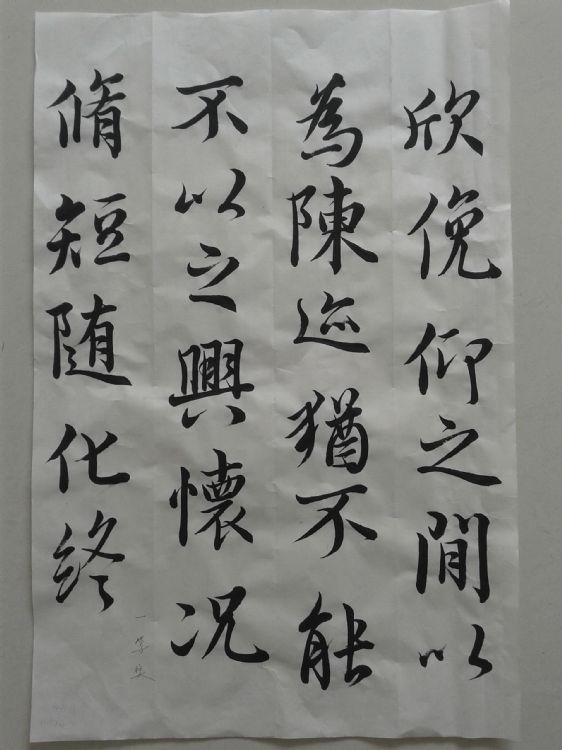 欣俛仰之閒以
為陳迹猶不能
不以之興懷况
脩短随化終